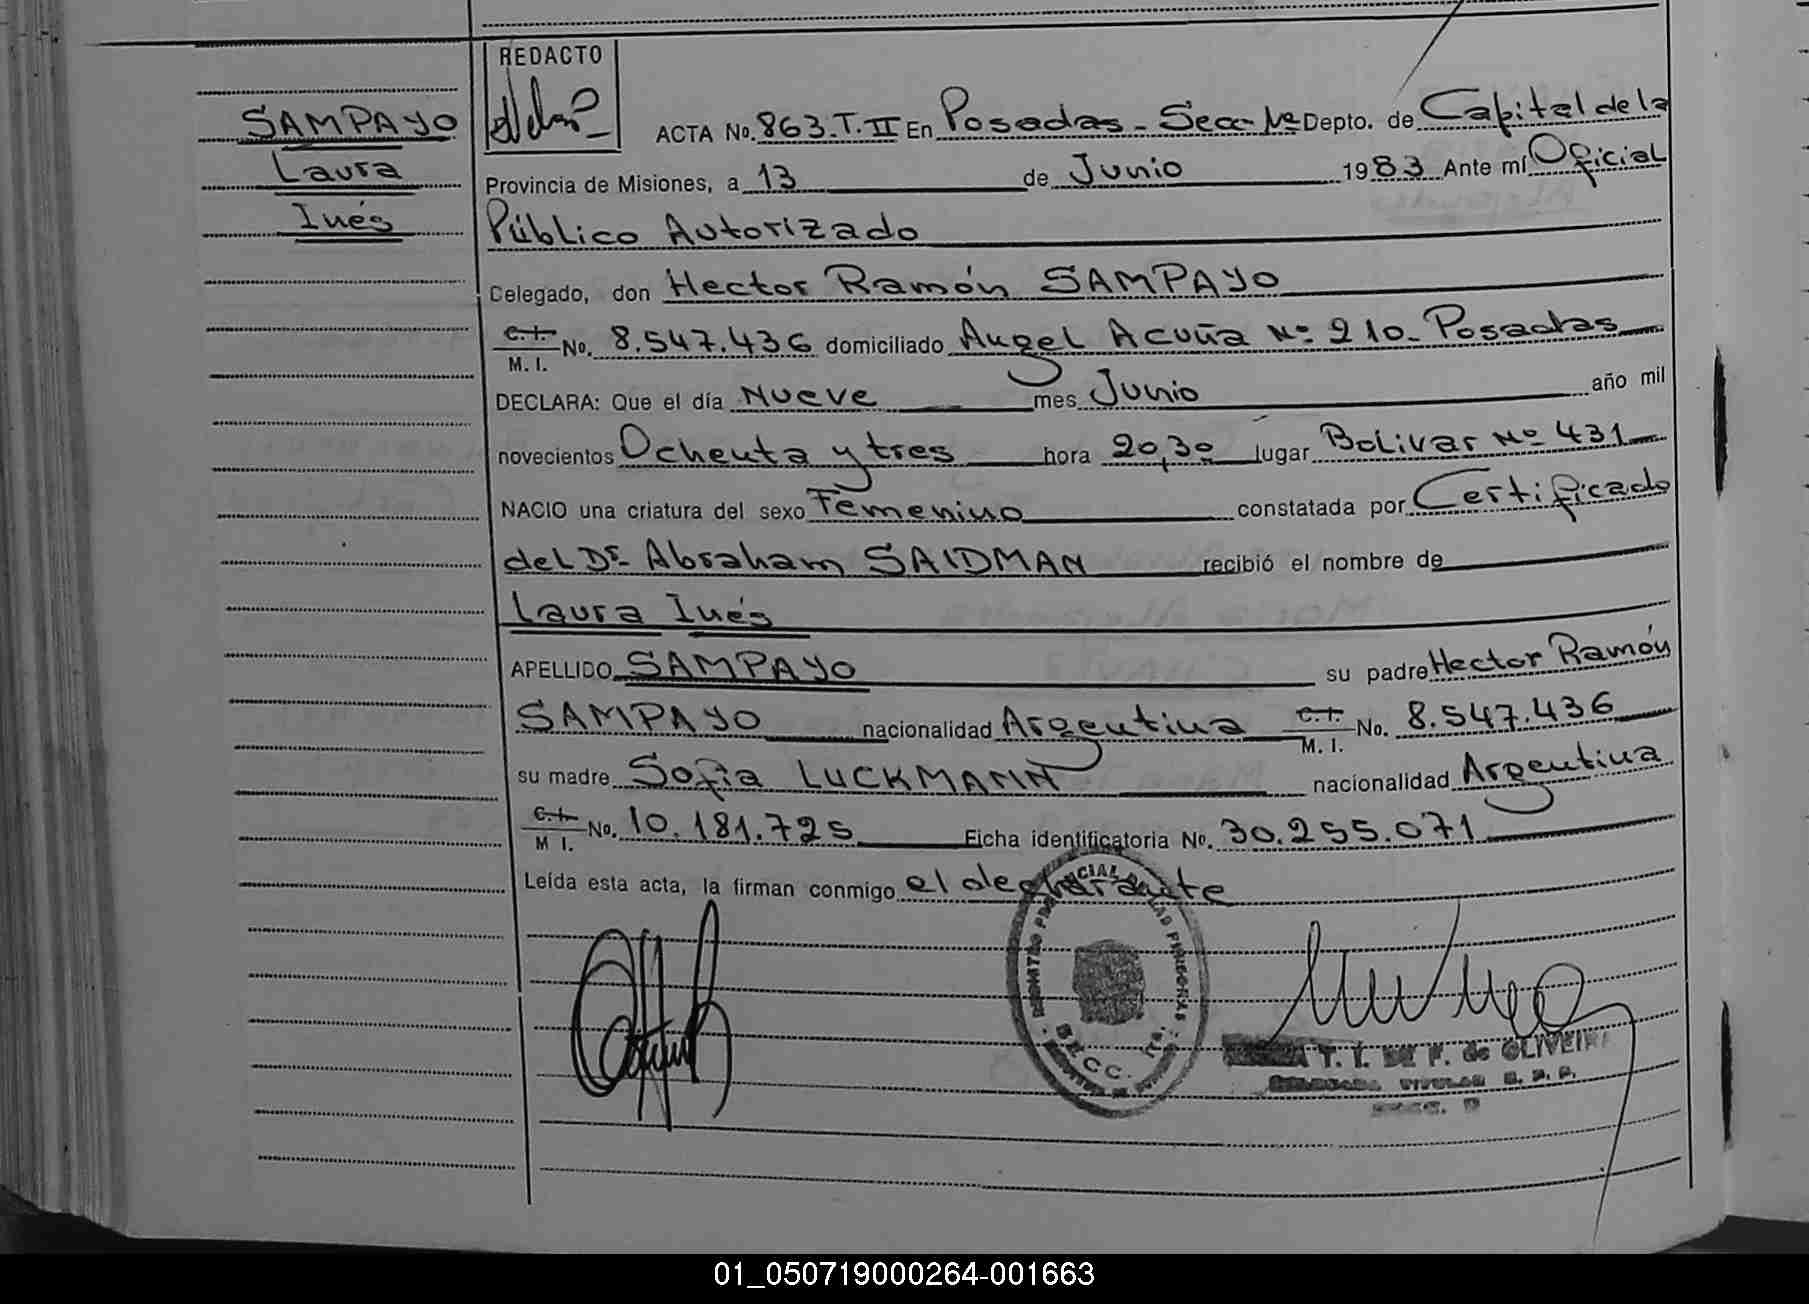 REDACTO
SAMPAYO
Laura
Inés
ACTA No. 863.T.II En Posadas - Secc 1ra Depto. de Capital de la
Provincia de Misiones, a 13 de Junio 1983 Ante mí Oficial
Público Autorizado
Celegado, don Hector Ramón SAMPAYO
C.I. M. I. No. 8.547.436 domiciliado Angel Acuña Nº 210- Posadas
DECLARA: Que el día Nueve mes Junio año mil
novecientos Ochenta y tres hora 20,30 lugar Bolivar Nº 431
NACIO una criatura del sexo Femenino constatada por Certificado
del Dr. Abraham SAIDMAN recibió el nombre de
Laura Inés
APELLIDO SAMPAYO su padre Hector Ramón
SAMPAYO nacionalidad Argentina C.I. M. I. No. 8.547.436
su madre Sofia LUCKMANN nacionalidad Argentina
C.I. M I. No. 10.181.725 Ficha identificatoria No. 30.255.071
Leída esta acta, la firman conmigo el declarante
REGISTRO PROVINCIAL DE LAS PERSONAS
SECC. 1ra.
T. I. DE F. de OLIVEIRA
TITULAR R. P. P.
SECC.
01_050719000264-001663